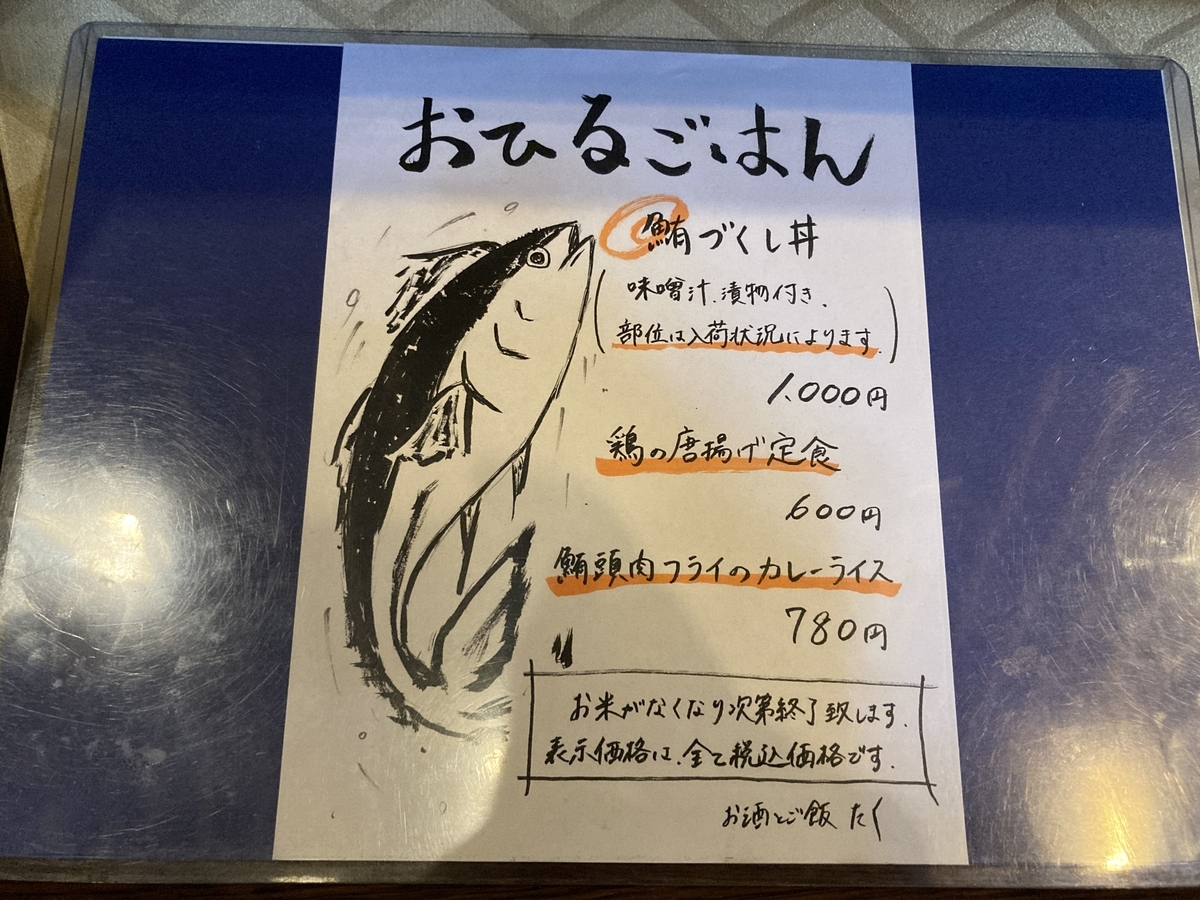 おひるごはん
鮪づくし丼
(味噌汁、漬物付き、
部位は入荷状況によります。)
1,000円
鶏の唐揚げ定食
600円
鮪頭肉フライのカレーライス
780円
お米がなくなり次第終了致します。
表示価格は、全て税込価格です。
お酒とご飯 たく